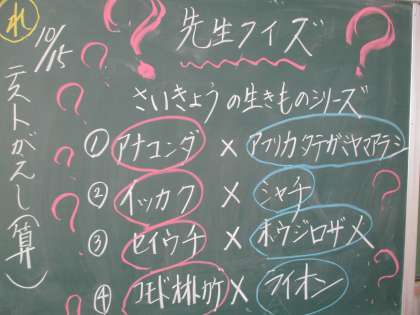 れ
10/15
テストがえし(算)
先生クイズ
さいきょうの生きものシリーズ
① アナコンダ × アフリカタテガミヤマアラシ
② イッカク × シャチ
③ セイウチ × ホウジロザメ
④ コモドオオトカゲ × ライオン